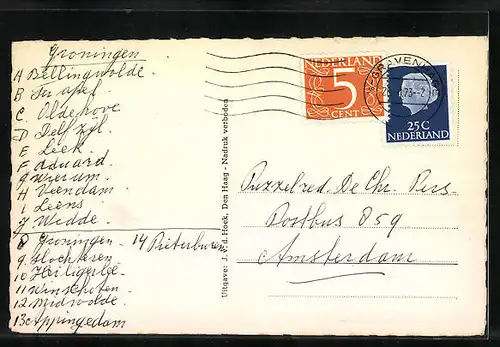 Groningen
A Bellingwolde.
B Ter apel
C. Oldehove
D Delfzyl.
E Leek.
F aduard.
G Wierum.
H Veendam.
i Leens
J Wedde.
8 Groningen - 14 Pieterburen
9. Slochteren
10 Heiligerlee.
11 Winschoten.
12 Midwolde.
13 appingedam
Uitgave: J. h. d. Hoek, Den Haag - Nadruk verboden
NEDERLAND
5
CENT
'S-GRAVENH
73
25C
NEDERLAND
Puzzelred. De Chr. Pers.
Postbus 859
Amsterdam